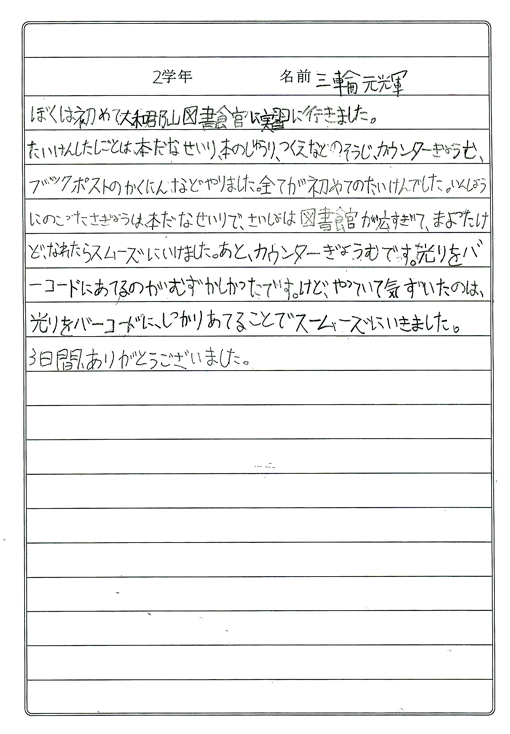 2学年 名前 三輪元光軍
ぼくは初めて大和郡山図書館に実習に行きました。
たいけんしたしごとは、本だなせいり、本のしゅうり、つくえなどのそうじ、カウンターぎょうむ、
ブックポストのかくにんなどやりました。全てが初めてのたいけんでした。いんしょう
にのこったさぎょうは、本だなせいりで、さいしょは図書館が広すぎて、まよったけ
ど、なれたらスムーズにいけました。あと、カウンターぎょうむです。光りをバ
ーコードにあてるのがむずかしかったです。けど、やっていて気ずいたのは、
光りをバーコードに、しっかりあてることでスームーズにいきました。
3日間、ありがとうございました。